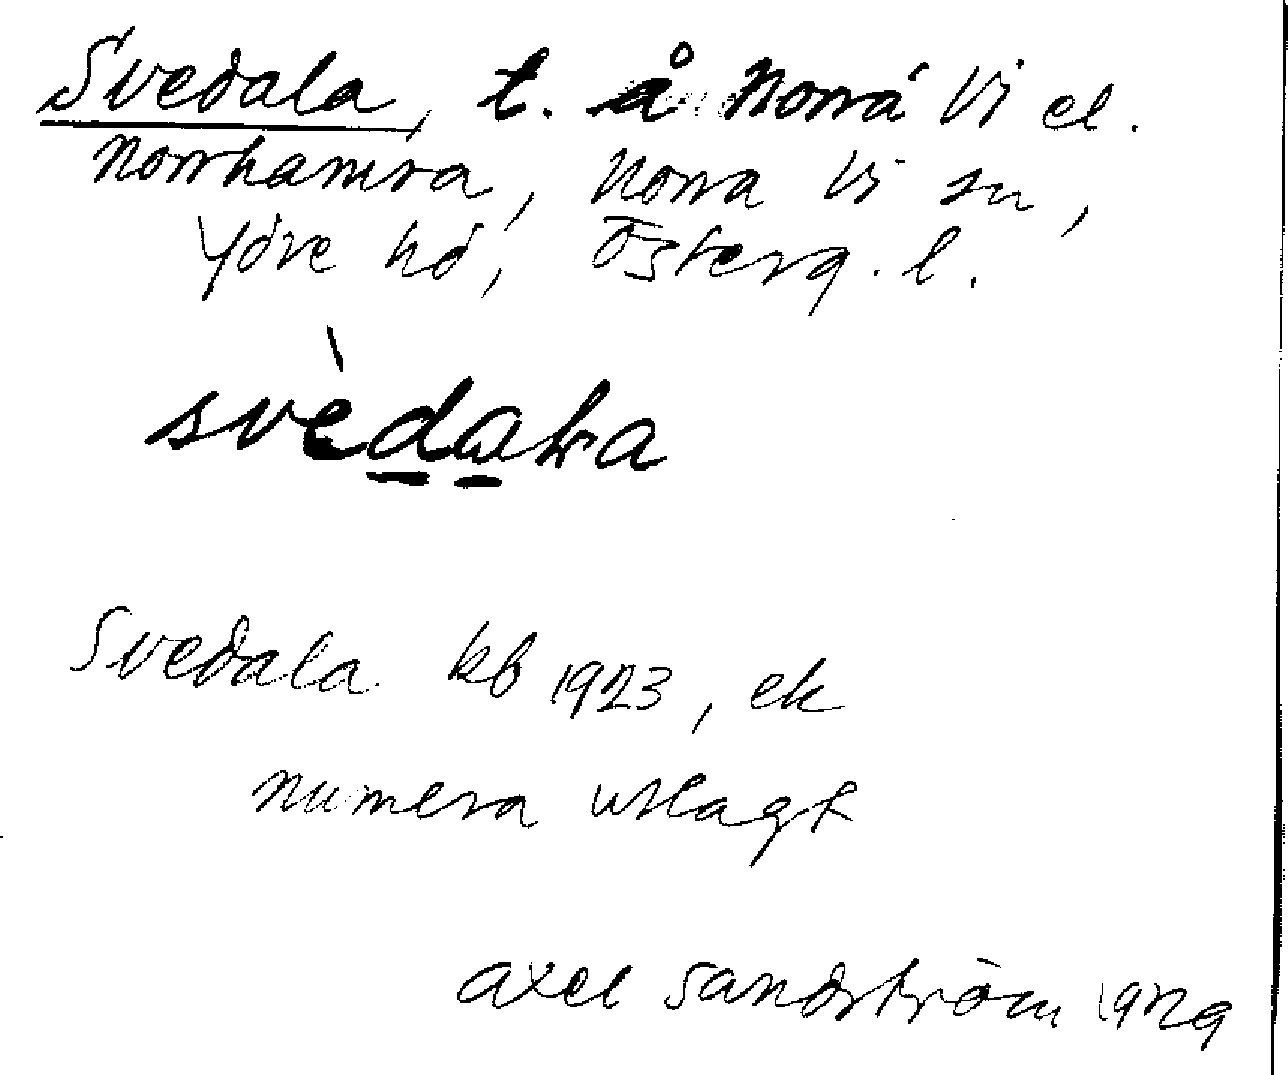 Svedala, t. å Norra Vi el.
Norrhamra, Norra Vi sn,
Ydre hd, Österg. l.
svèdaɫa
Svedala kb 1923, ek
numera utlagt
Axel Sandström 1929